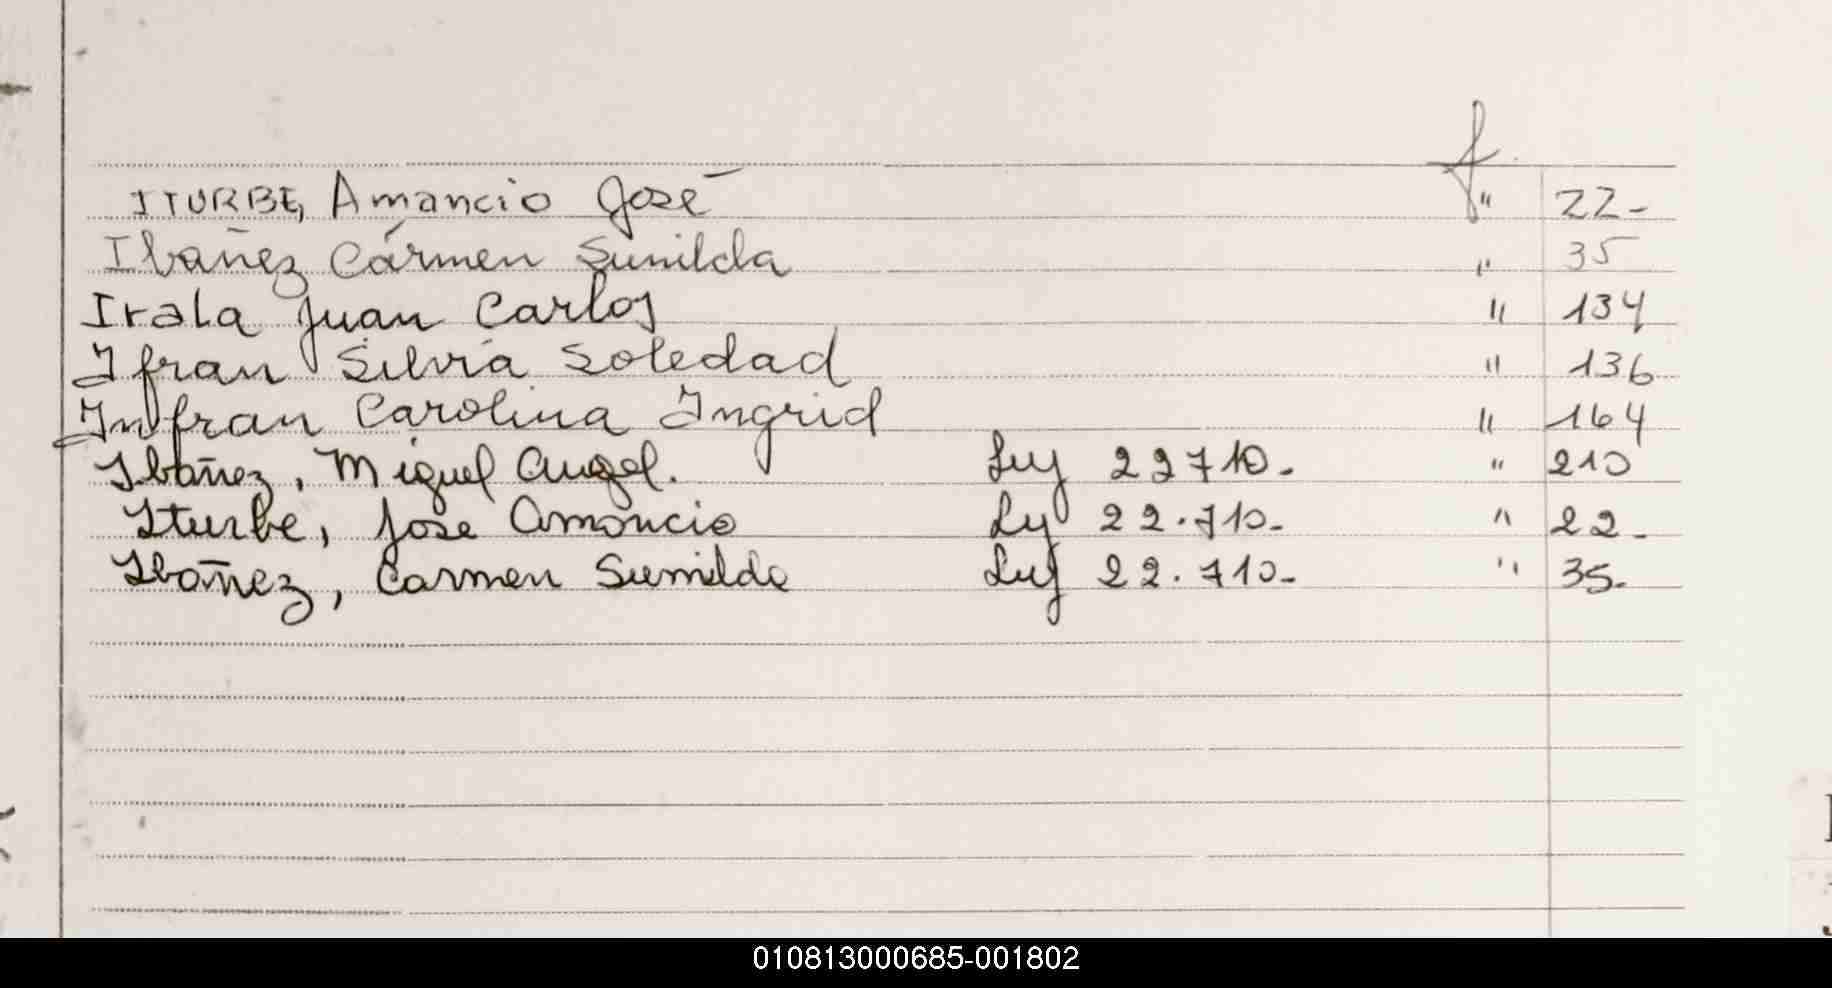 f
ITURBE, Amancio José " 22-
Ibañez Cármen Sunilda " 35
Irala Juan Carlos " 134
Ifran Silvia Soledad " 136
Infran Carolina Ingrid " 164
Ibañez, Miguel Angel. Ley 22710.- " 210
Iturbe, Jose Amancio Ley 22.710- " 22.
Ibañez, Carmen Sumilda Ley 22.710- " 35.
010813000685-001802